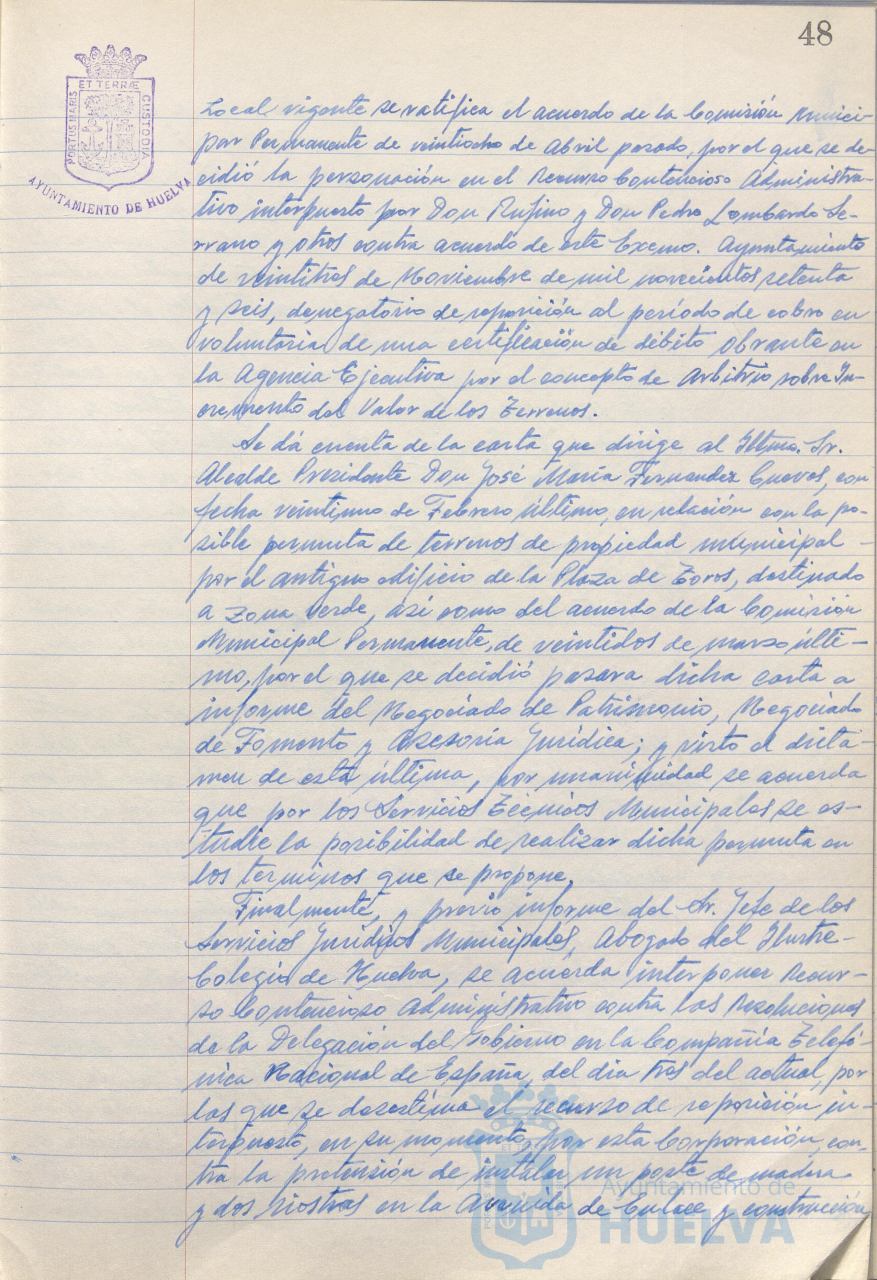 48
PORTUS MARIS ET TERRÆ CUSTODIA
AYUNTAMIENTO DE HUELVA
Local vigente se ratifica el acuerdo de la Comisión Munici-
par Permanente de veintiocho de Abril pasado, por el que se de-
cidió la personación en el Recurso Contencioso Administra-
tivo interpuesto por Don Rufino y Don Pedro Lombardo Se-
rrano y otros contra acuerdo de este Excmo. Ayuntamiento
de veintitres de Noviembre de mil novecientos setenta
y seis, denegatorio de reposición al período de cobro en
voluntaria de una certificación de débito obrante en
la Agencia Ejecutiva por el concepto de Arbitrio sobre In-
cremento del Valor de los Terrenos.
Se dá cuenta de la carta que dirige al Iltmo. Sr.
Alcalde Presidente Don José María Fernandez Cuevas, con
fecha veintiuno de Febrero último, en relación con la po-
sible permuta de terrenos de propiedad municipal -
por el antiguo edificio de la Plaza de Toros, destinado
a zona verde, así como del acuerdo de la Comisión
Municipal Permanente, de veintidos de marzo últi-
mo, por el que se decidió pasara dicha carta a
informe del Negociado de Patrimonio, Negociado
de Fomento y Asesoría Jurídica; y visto el dicta-
men de esta última, por unanimidad se acuerda
que por los Servicios Técnicos Municipales se es-
tudie la posibilidad de realizar dicha permuta en
los terminos que se propone.
Finalmente, y previo informe del Sr. Jefe de los
Servicios Jurídicos Municipales, Abogado del Ilustre-
Colegio de Huelva, se acuerda interponer Recur-
so Contencioso Administrativo contra las Resoluciones
de la Delegación del Gobierno en la Compañía Telefó-
nica Nacional de España, del dia tres del actual, por
las que se desestima el recurso de reposición in-
terpuesto, en su momento, por esta Corporación, con-
tra la pretensión de instalar un poste de madera
y dos riostras en la Avenida de Enlace y construcción
Ayuntamiento de
HUELVA